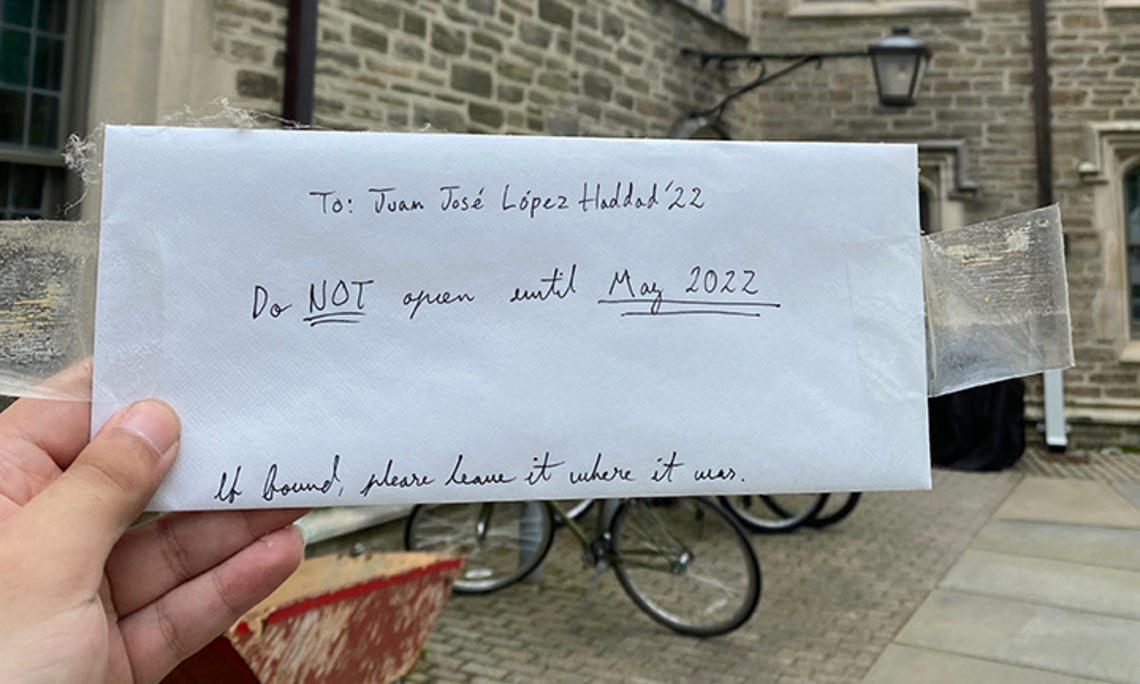 To: Juan José López Haddad '22
Do NOT open until May 2022
If found, please leave it where it was.